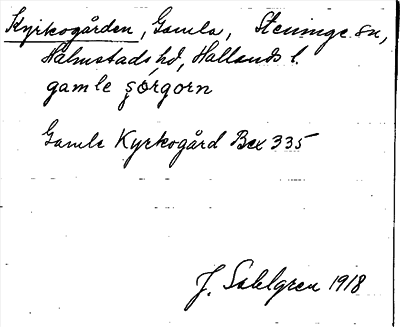 Kyrkogården, Gamla, Steninge sn,
Halmstads hd, Hallands l.
gamle şǫrgorn
Gamla Kyrkogård Bex 335
J. Sahlgren 1918